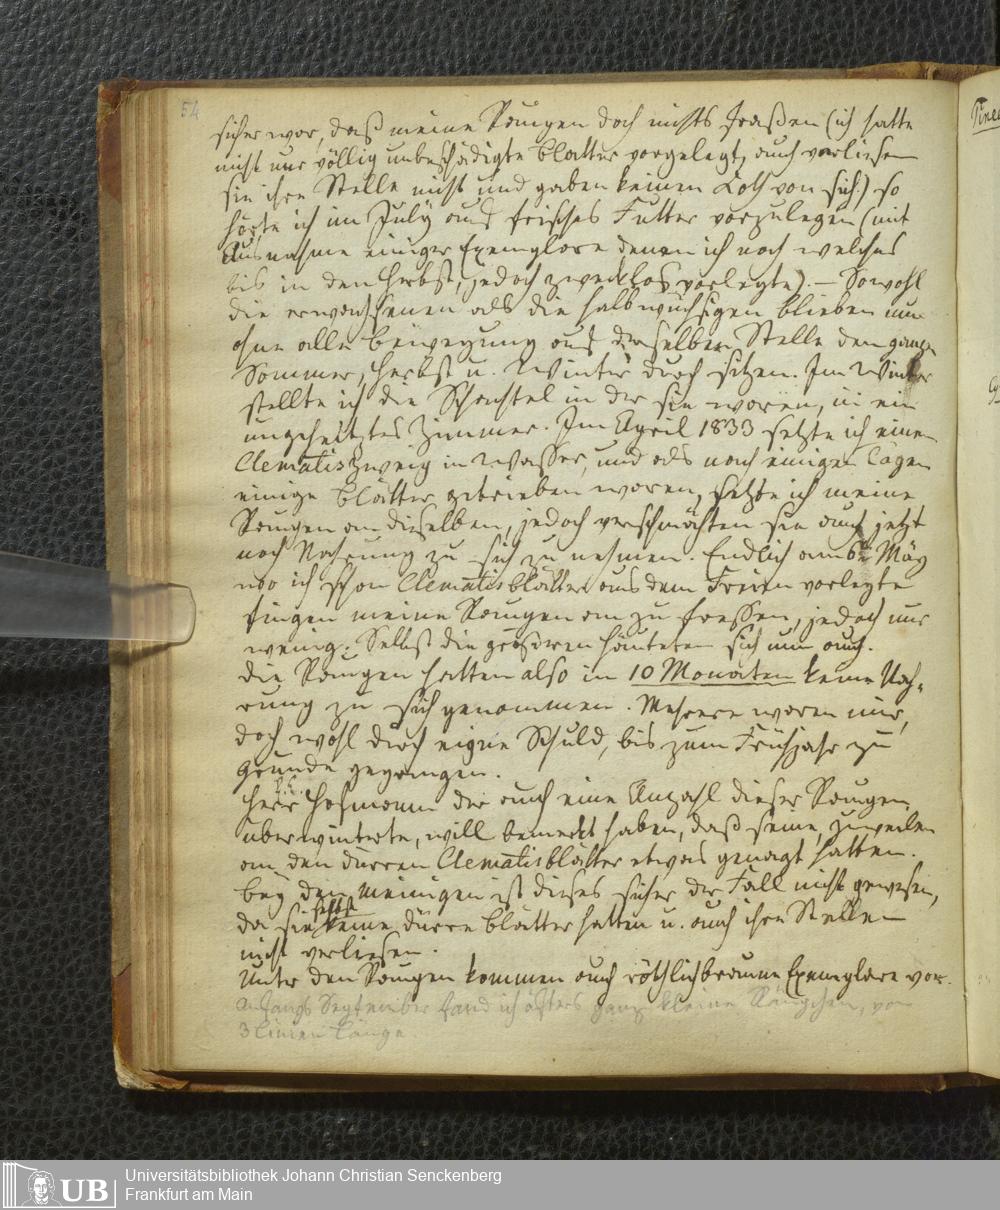 54
sicher war, daß meine Raupen doch nichts fraßen (ich hatte
nicht nur völlig unbeschädigte Blätter vorgelegt, auch verließen
sie ihre Stelle nicht und gaben keinen Koth von sich) so
hörte ich im July auf frisches Futter vorzulegen (mit
Ausnahme einiger Exemplare denen ich noch welches
bis in den Herbst, jedoch zwecklos vorlegte). – Sowohl
die erwachsenen als die halbwüchsigen blieben nun
ohne alle Bewegung auf derselben Stelle den ganzen
Sommer, Herbst u. Winter durch sitzen. Im Winter
stellte ich die Schachtel in der sie waren, in ein
ungeheitztes Zimmer. Im April 1833 setzte ich einen
Clematiszweig in Wasser, und als nach einigen Tagen
einige Blätter getrieben waren, setzte ich meine
Raupen an dieselben, jedoch verschmähten sie auch jetzt
noch Nahrung zu sich zu nehmen. Endlich am 6ten May
wo ich schon Clematisblätter aus dem Freien vorlegte
fingen meine Raupen an zu fressen, jedoch nur
wenig. Selbst die größren häuteten sich nun auch.
Die Raupen hatten also in 10 Monaten keine Nah-
rung zu sich genommen. Mehrere waren mir,
doch wohl durch eigne Schuld, bis zum Frühjahr zu
Grunde gegangen.
Herr Hofmann der auch eine Anzahl dieser Raupen
überwinterte, will bemerkt haben, daß seine, zuweilen
an den dürren Clematisblätter etwas genagt hatten.
bey den meinigen ist dieses sicher der Fall nicht gewesen,
da sie selbst keine dürre Blätter hatten u. auch ihre Stelle
nicht verließen.
Unter den Raupen kommen auch röthlichbraune Exemplare vor.
Anfangs September fand ich öfters ganz kleine Räupchen, von
3 Linien Länge.
Universitätsbibliothek Johann Christian Senckenberg
Frankfurt am Main
UB